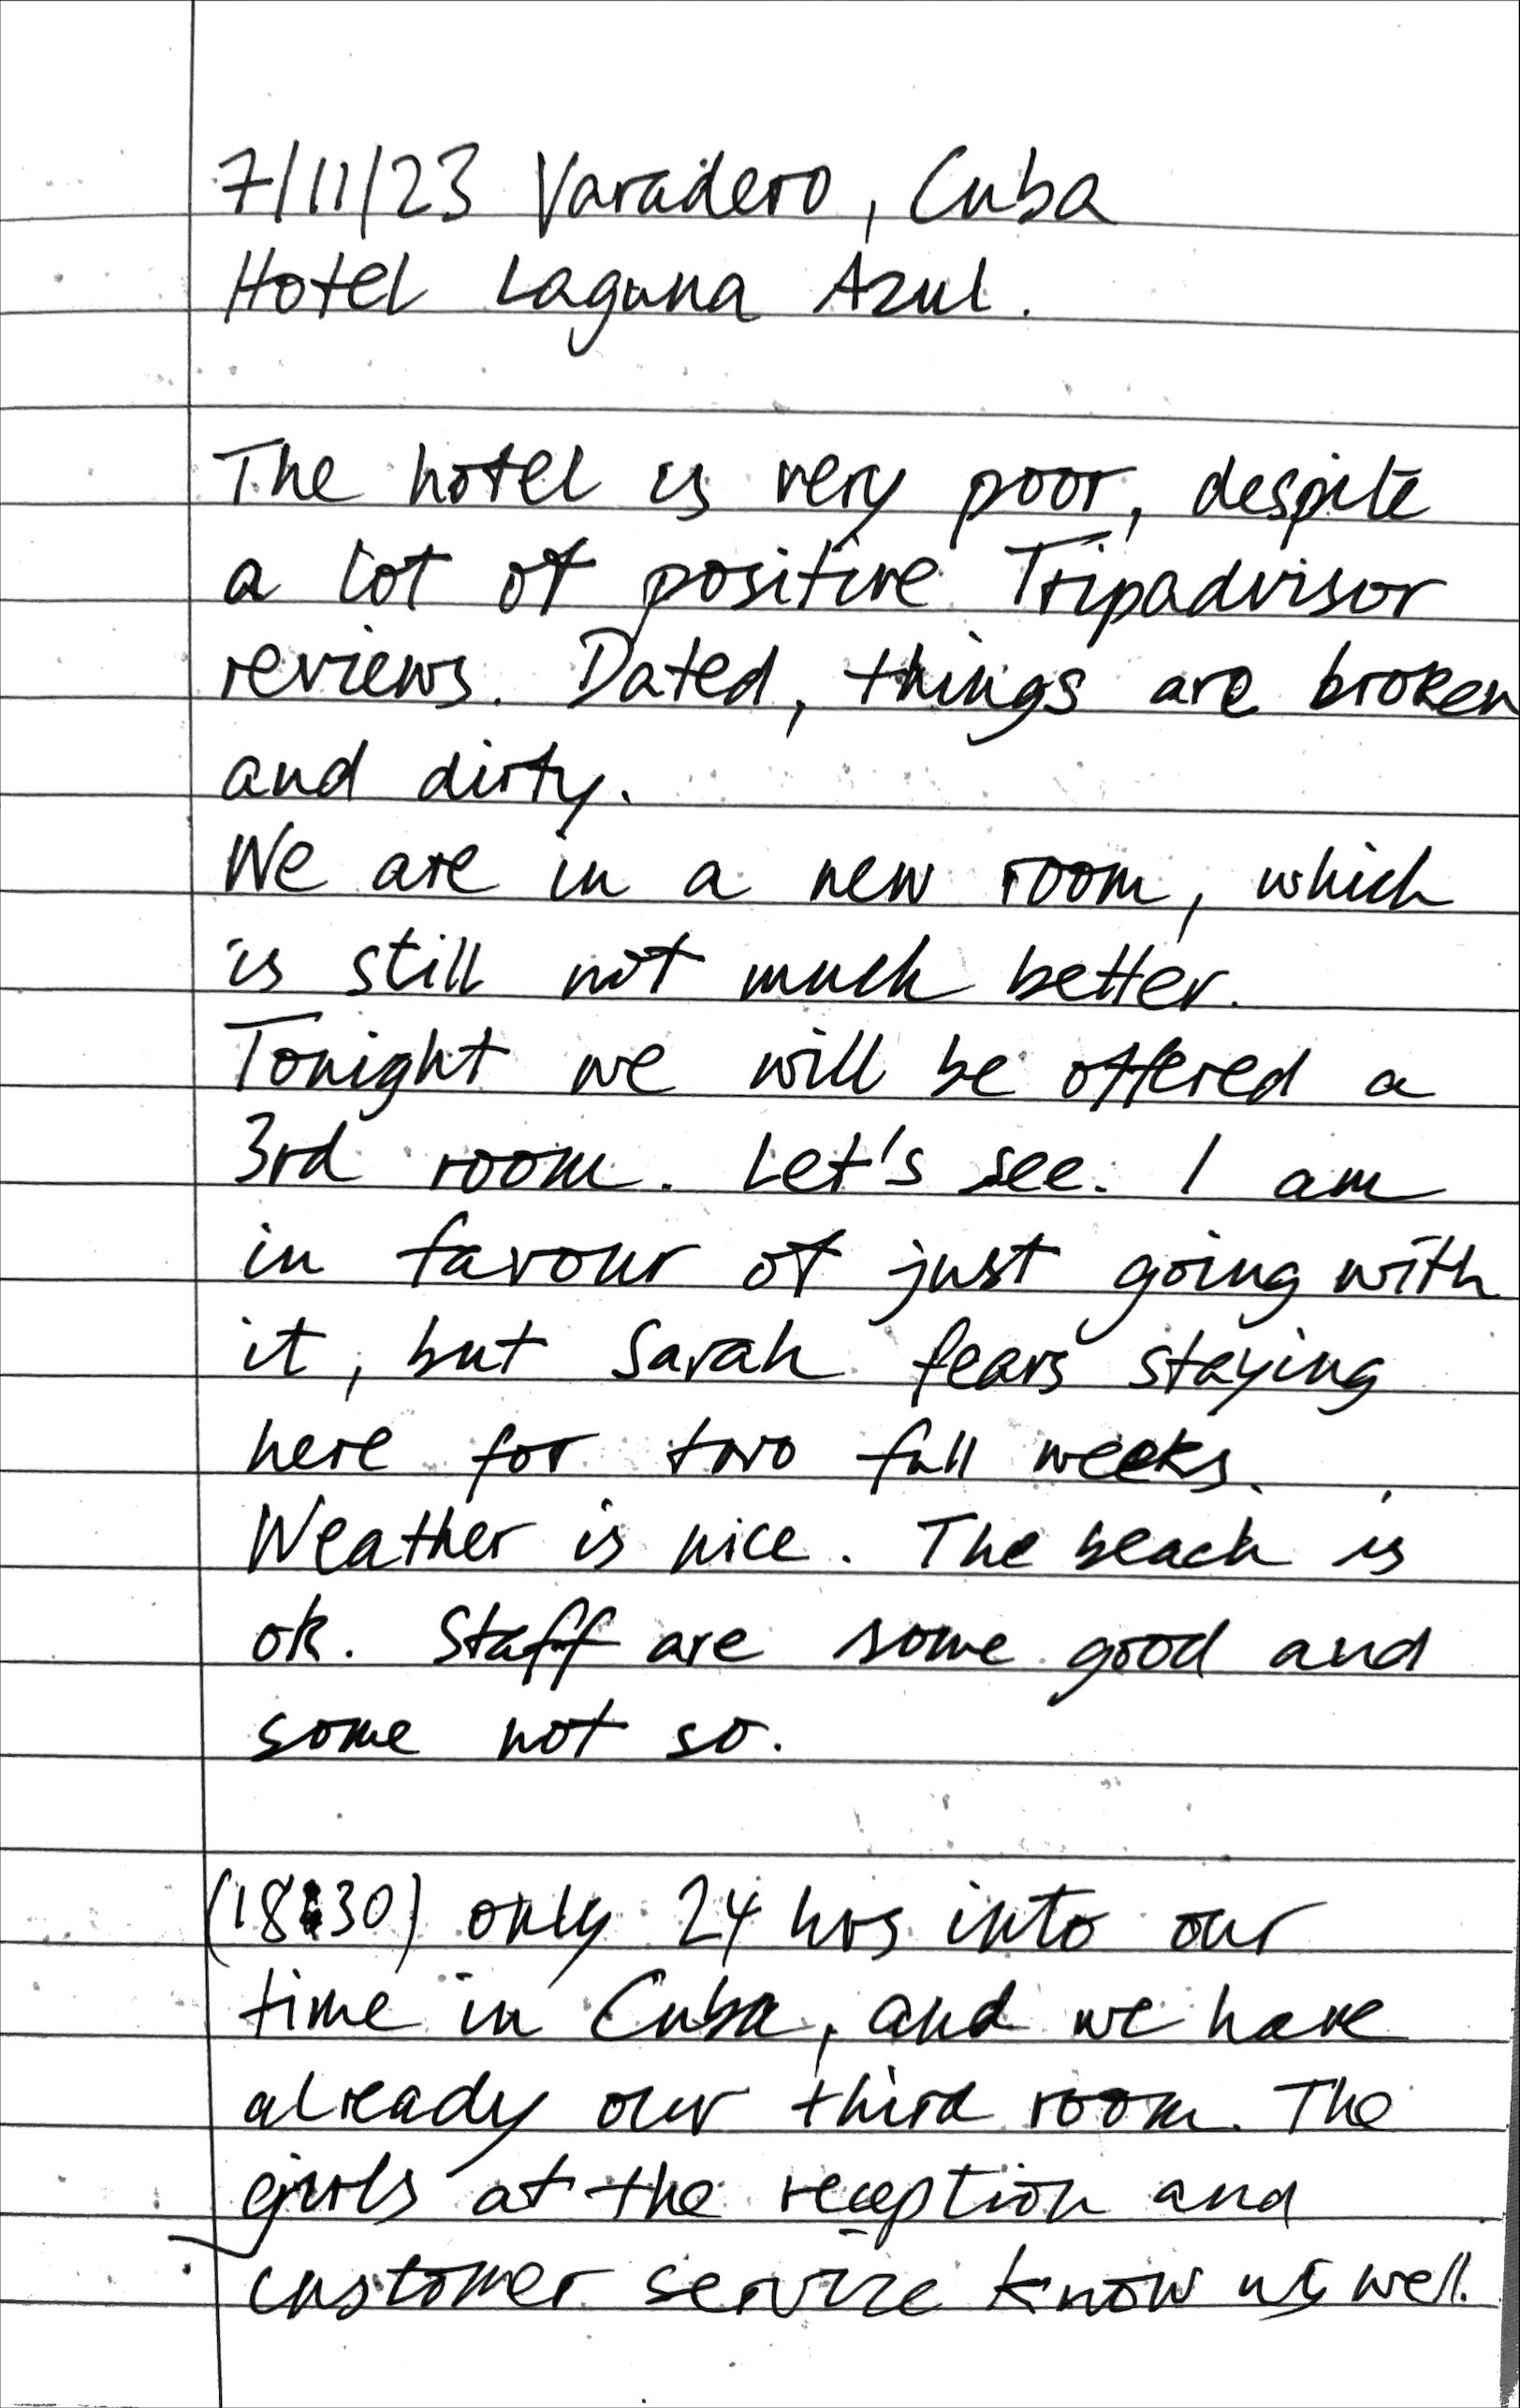 7/11/23 Varadero, Cuba
Hotel Laguna Azul.
The hotel is very poor, despite
a lot of positive Tripadvisor
reviews. Dated, things are broken
and dirty.
We are in a new room, which
is still not much better.
Tonight we will be offered a
3rd room. Let's see. I am
in favour of just going with
it, but Sarah fears staying
here for two full weeks.
Weather is nice. The beach is
ok. Staff are some good and
some not so.
(18:30) only 24 hrs into our
time in Cuba, and we have
already our third room. The
girls at the reception and
customer service know us well.